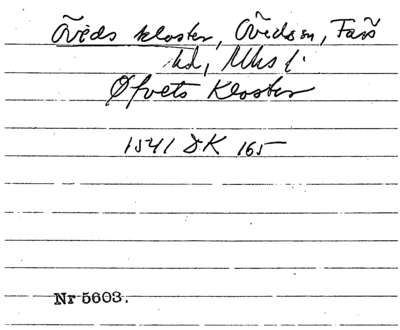 Öveds kloster, Öveds sn, Färs
hd, Mhs l.
Øfvets Kloster
1541 DK 165
Nr 5603.